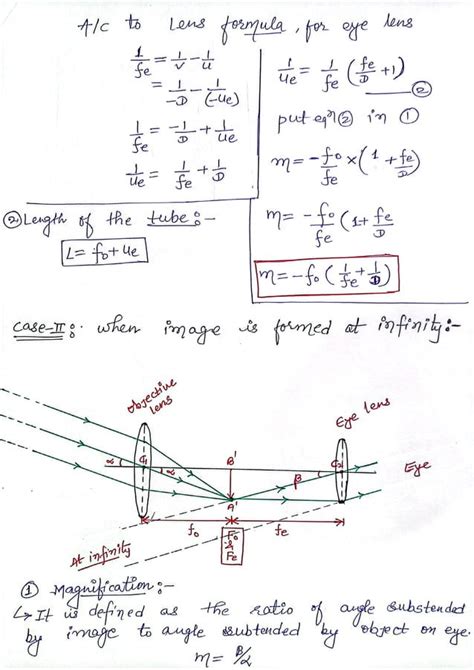 A/c to Lens formula, for eye lens
1/fe = 1/v - 1/u
= 1/-D - 1/(-ue)
1/fe = -1/D + 1/ue
1/ue = 1/fe + 1/D
② Length of the tube:-
L = fo + ue
1/ue = 1/fe (fe/D + 1)
②
put eqn ② in ①
m = -fo/fe × (1 + fe/D)
m = -fo/fe (1 + fe/D)
m = -fo (1/fe + 1/D)
Case-II: when image is formed at infinity:-
Objective lens
Eye lens
Eye
α C1 α
B'
β
C2
A'
fo
fe
Fo & Fe
At infinity
① Magnification:-
↳ It is defined as the ratio of angle substended
by image to angle subtended by object on eye.
m = β/α